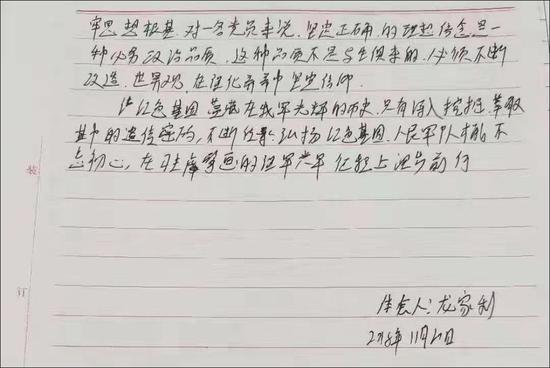 牢思想根基。对一名党员来说,坚定正确的理想信念是一
种必备政治品质,这种品质不是与生俱来的,必须不断
改造世界观,在强化弄弄中坚定信仰。
红色基因蕴藏在我军光辉的历史,只有深入挖掘、萃取
其中的遗传密码,不断传承弘扬红色基因,人民军队才能不
忘初心,在强军兴军征程上
装
订
体会人:龙家利
11月21日